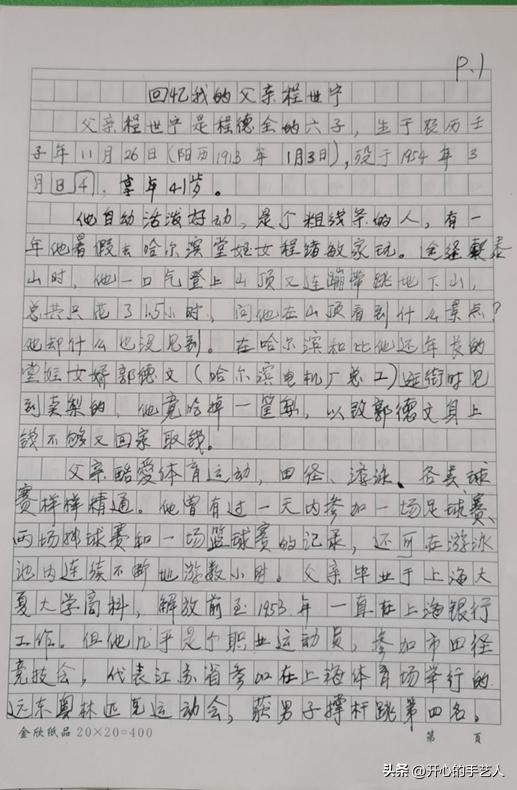 P.1
回忆我的父亲程世宁
父亲程世宁是程德全的六子，生于农历壬
子年11月26日（阳历1913年1月3日），殁于1954年3
月34，享年41岁。
他自幼活泼好动，是个粗线条的人，有一
年他暑假去哈尔滨堂姪女程绪敏家玩。途经泰
山时，他一口气登上山顶又连蹦带跳地下山，
总共只花了1.5小时，问他在山顶看到什么景点？
他却什么也没见到。在哈尔滨和比他还年长的
堂姪女婿郭德文（哈尔滨电机厂总工）逛街时见
到卖梨的，他竟吃掉一筐梨，以致郭德文身上
钱不够又回家取钱。
父亲酷爱体育运动，田径、游泳、各类球
赛样样精通。他曾有过一天内参加一场足球赛、
两场排球赛和一场篮球赛的记录，还可在游泳
池内连续不断地游数小时。父亲毕业于上海大
夏大学商科，解放前至1953年一直在上海银行
工作。但他几乎是个职业运动员，参加市田径
竞技会，代表江苏省参加在上海体育场举行的
远东奥林匹克运动会，获男子撑杆跳第四名。
金欣纸品 20×20=400 第 页
头条 @开心的手艺人